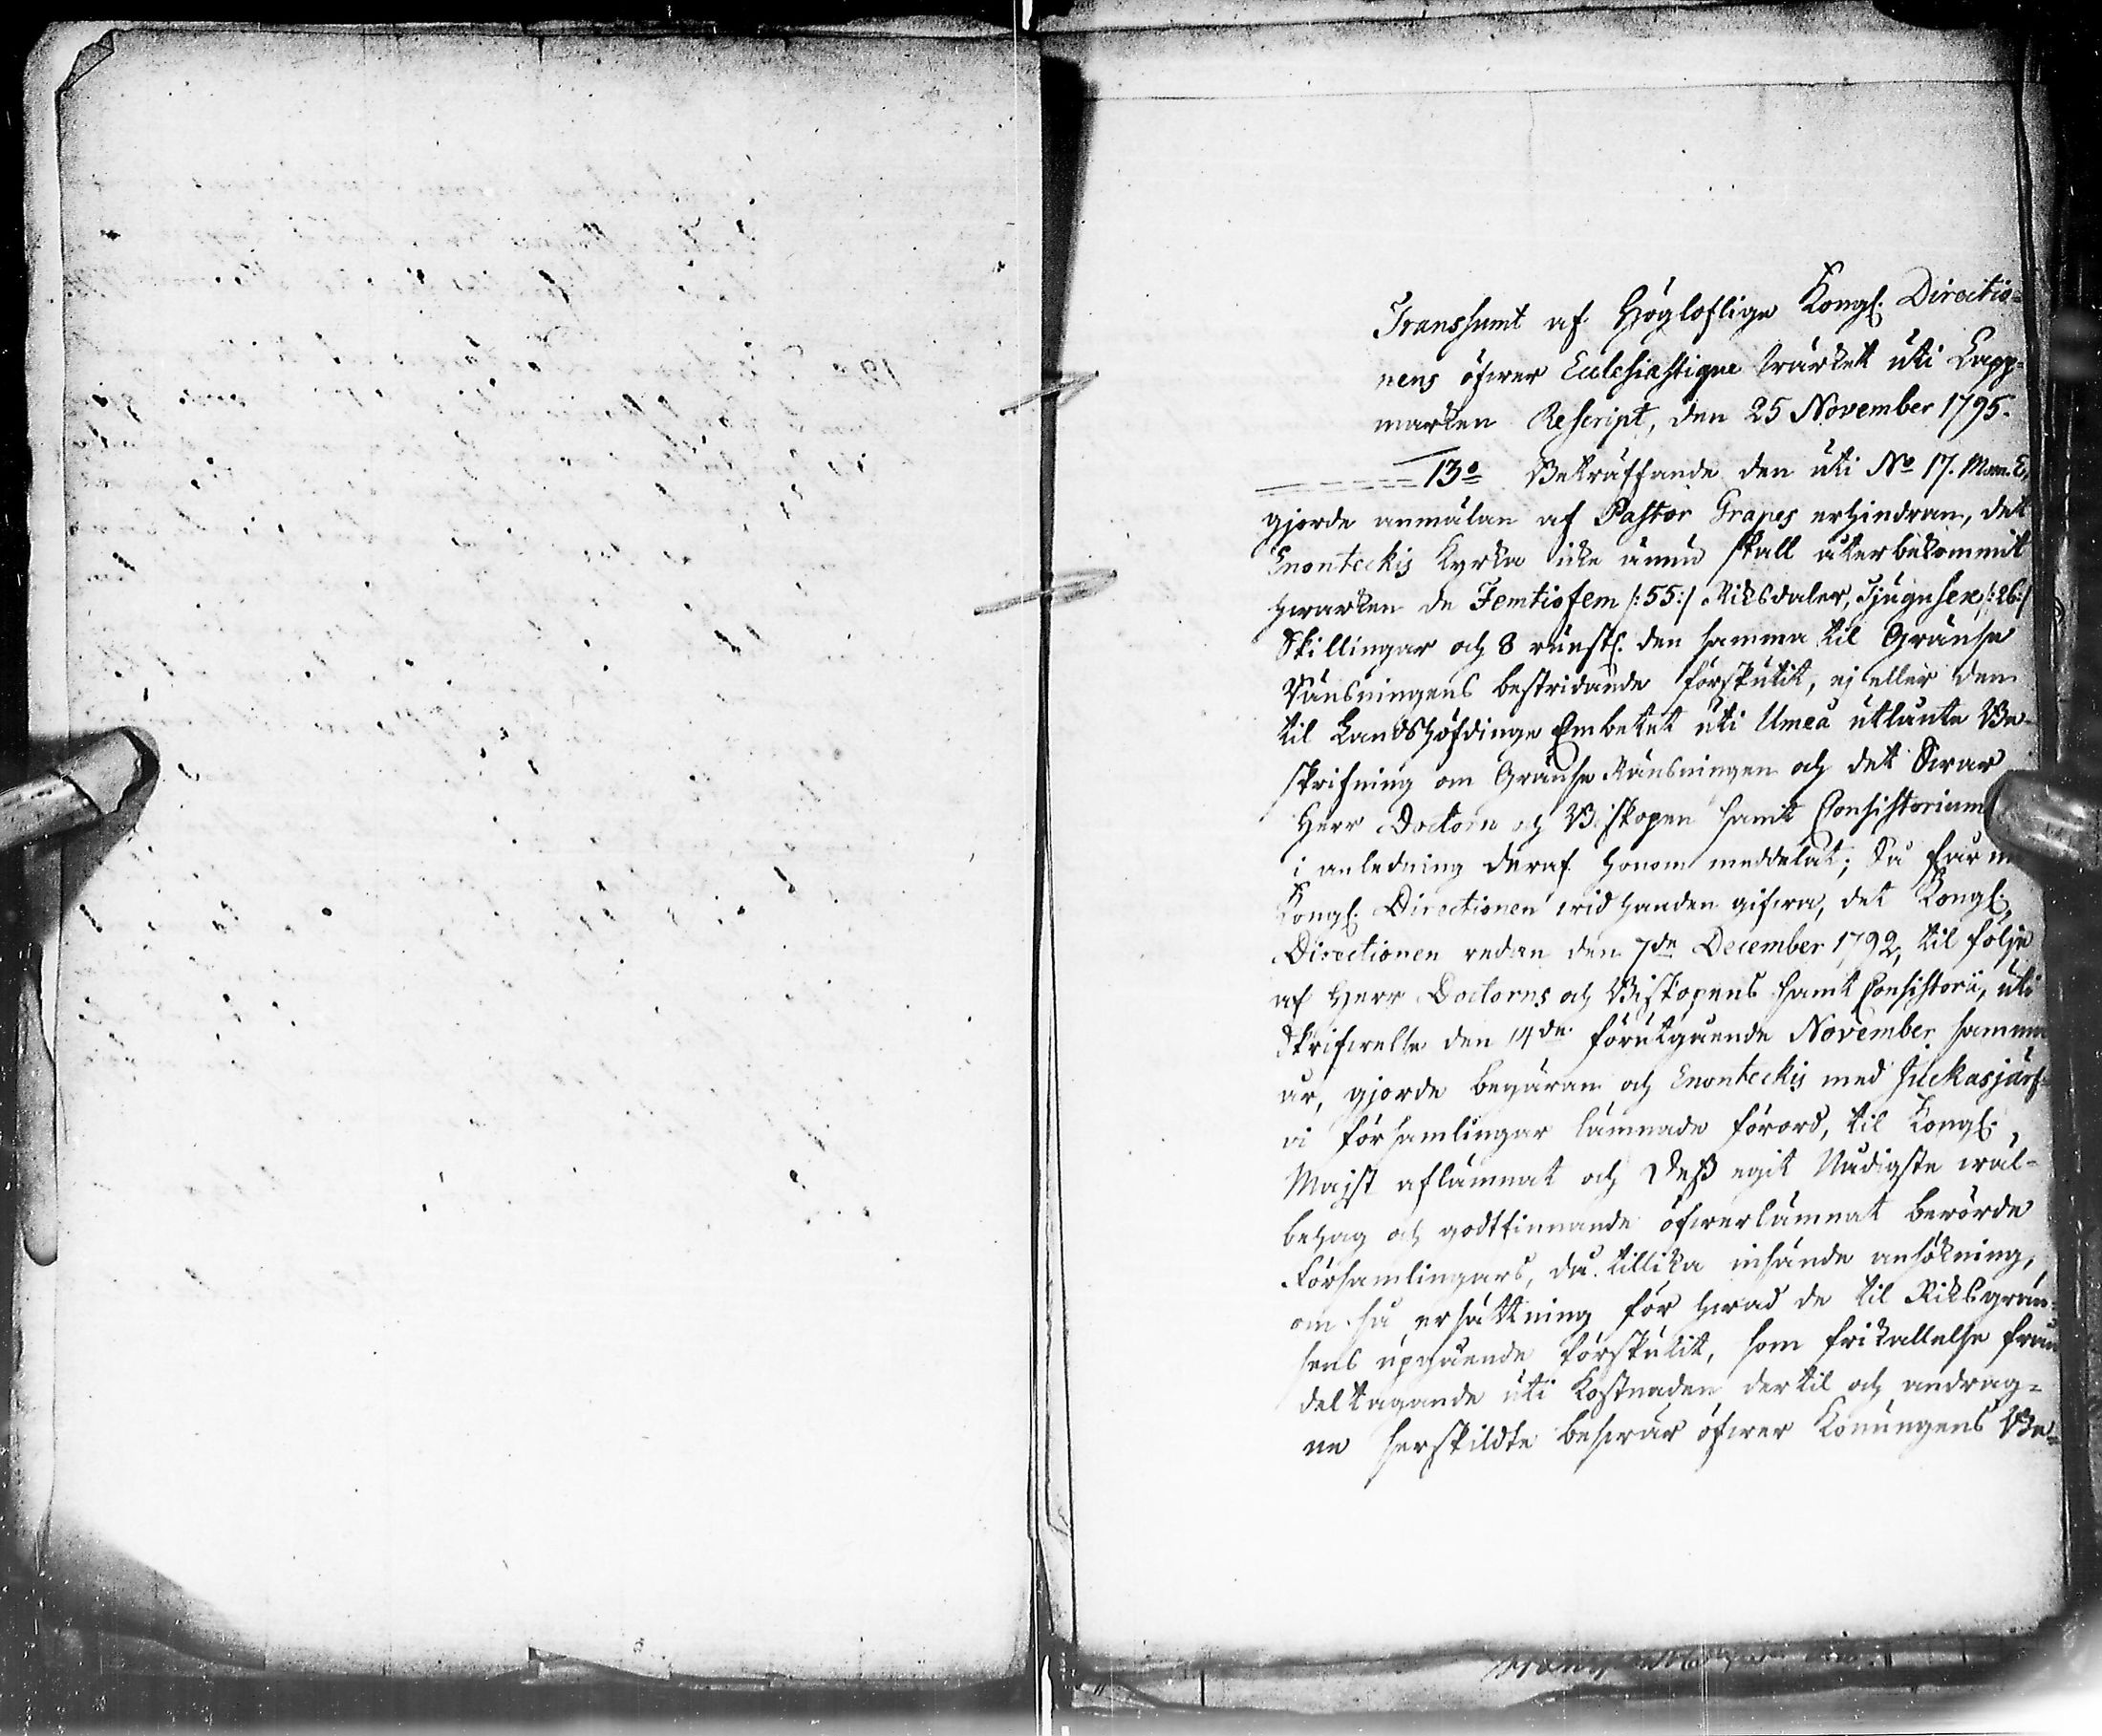 Transsumt af Högloflige Kongl. Directio-
nens öfwer Ecclesiastique wärket uti Lapp-
marken Rescript, den 25 November 1795.
13º Beträffande den uti Nº 17. Mom. E,
gjorde anmälan af Pastor Grapes erhindran, det
Enonteckis Kyrka icke ännu skall återbekommit
hwarken de Femtiofem /:55:/ Riksdaler, Tjugusex /:26:/
Skillingar och 8 runst. den samma til Gränse
Räns­ningens bestridande förskutit, ej eller den
til Landshöfdinge Embetet uti Umeå utlånte Be-
skrifning om Gränse Ränsningen och det Swar
Herr Doctorn och Biskopen samt Consistorium
i anledning deraf honom meddelat; Så får
Kongl. Directionen wid handen gifwa, det Kongl.
Directionen redan den 7de December 1792, til följe
af Herr Doctorns och Biskopens samt Consistorii, uti
Skrifwelse den 14de förutgående November samma
år, gjorde begäran och Enonteckis med Juckasjärf-
vi församlingar lämnade förord, til Kongl.
Majst aflämnat och Dess egit Nådigste wäl-
behag och godtfinnande öfwerlämnat berörde
Församlingars, då tillika insände ansökning,
om så ersättning för hwad de til Riksgrän-
sens upgående förskutit, som frikallelse från
deltagande uti Kostnaden dertil och andrag-
ne serskildte beswär öfwer Konungens Be-